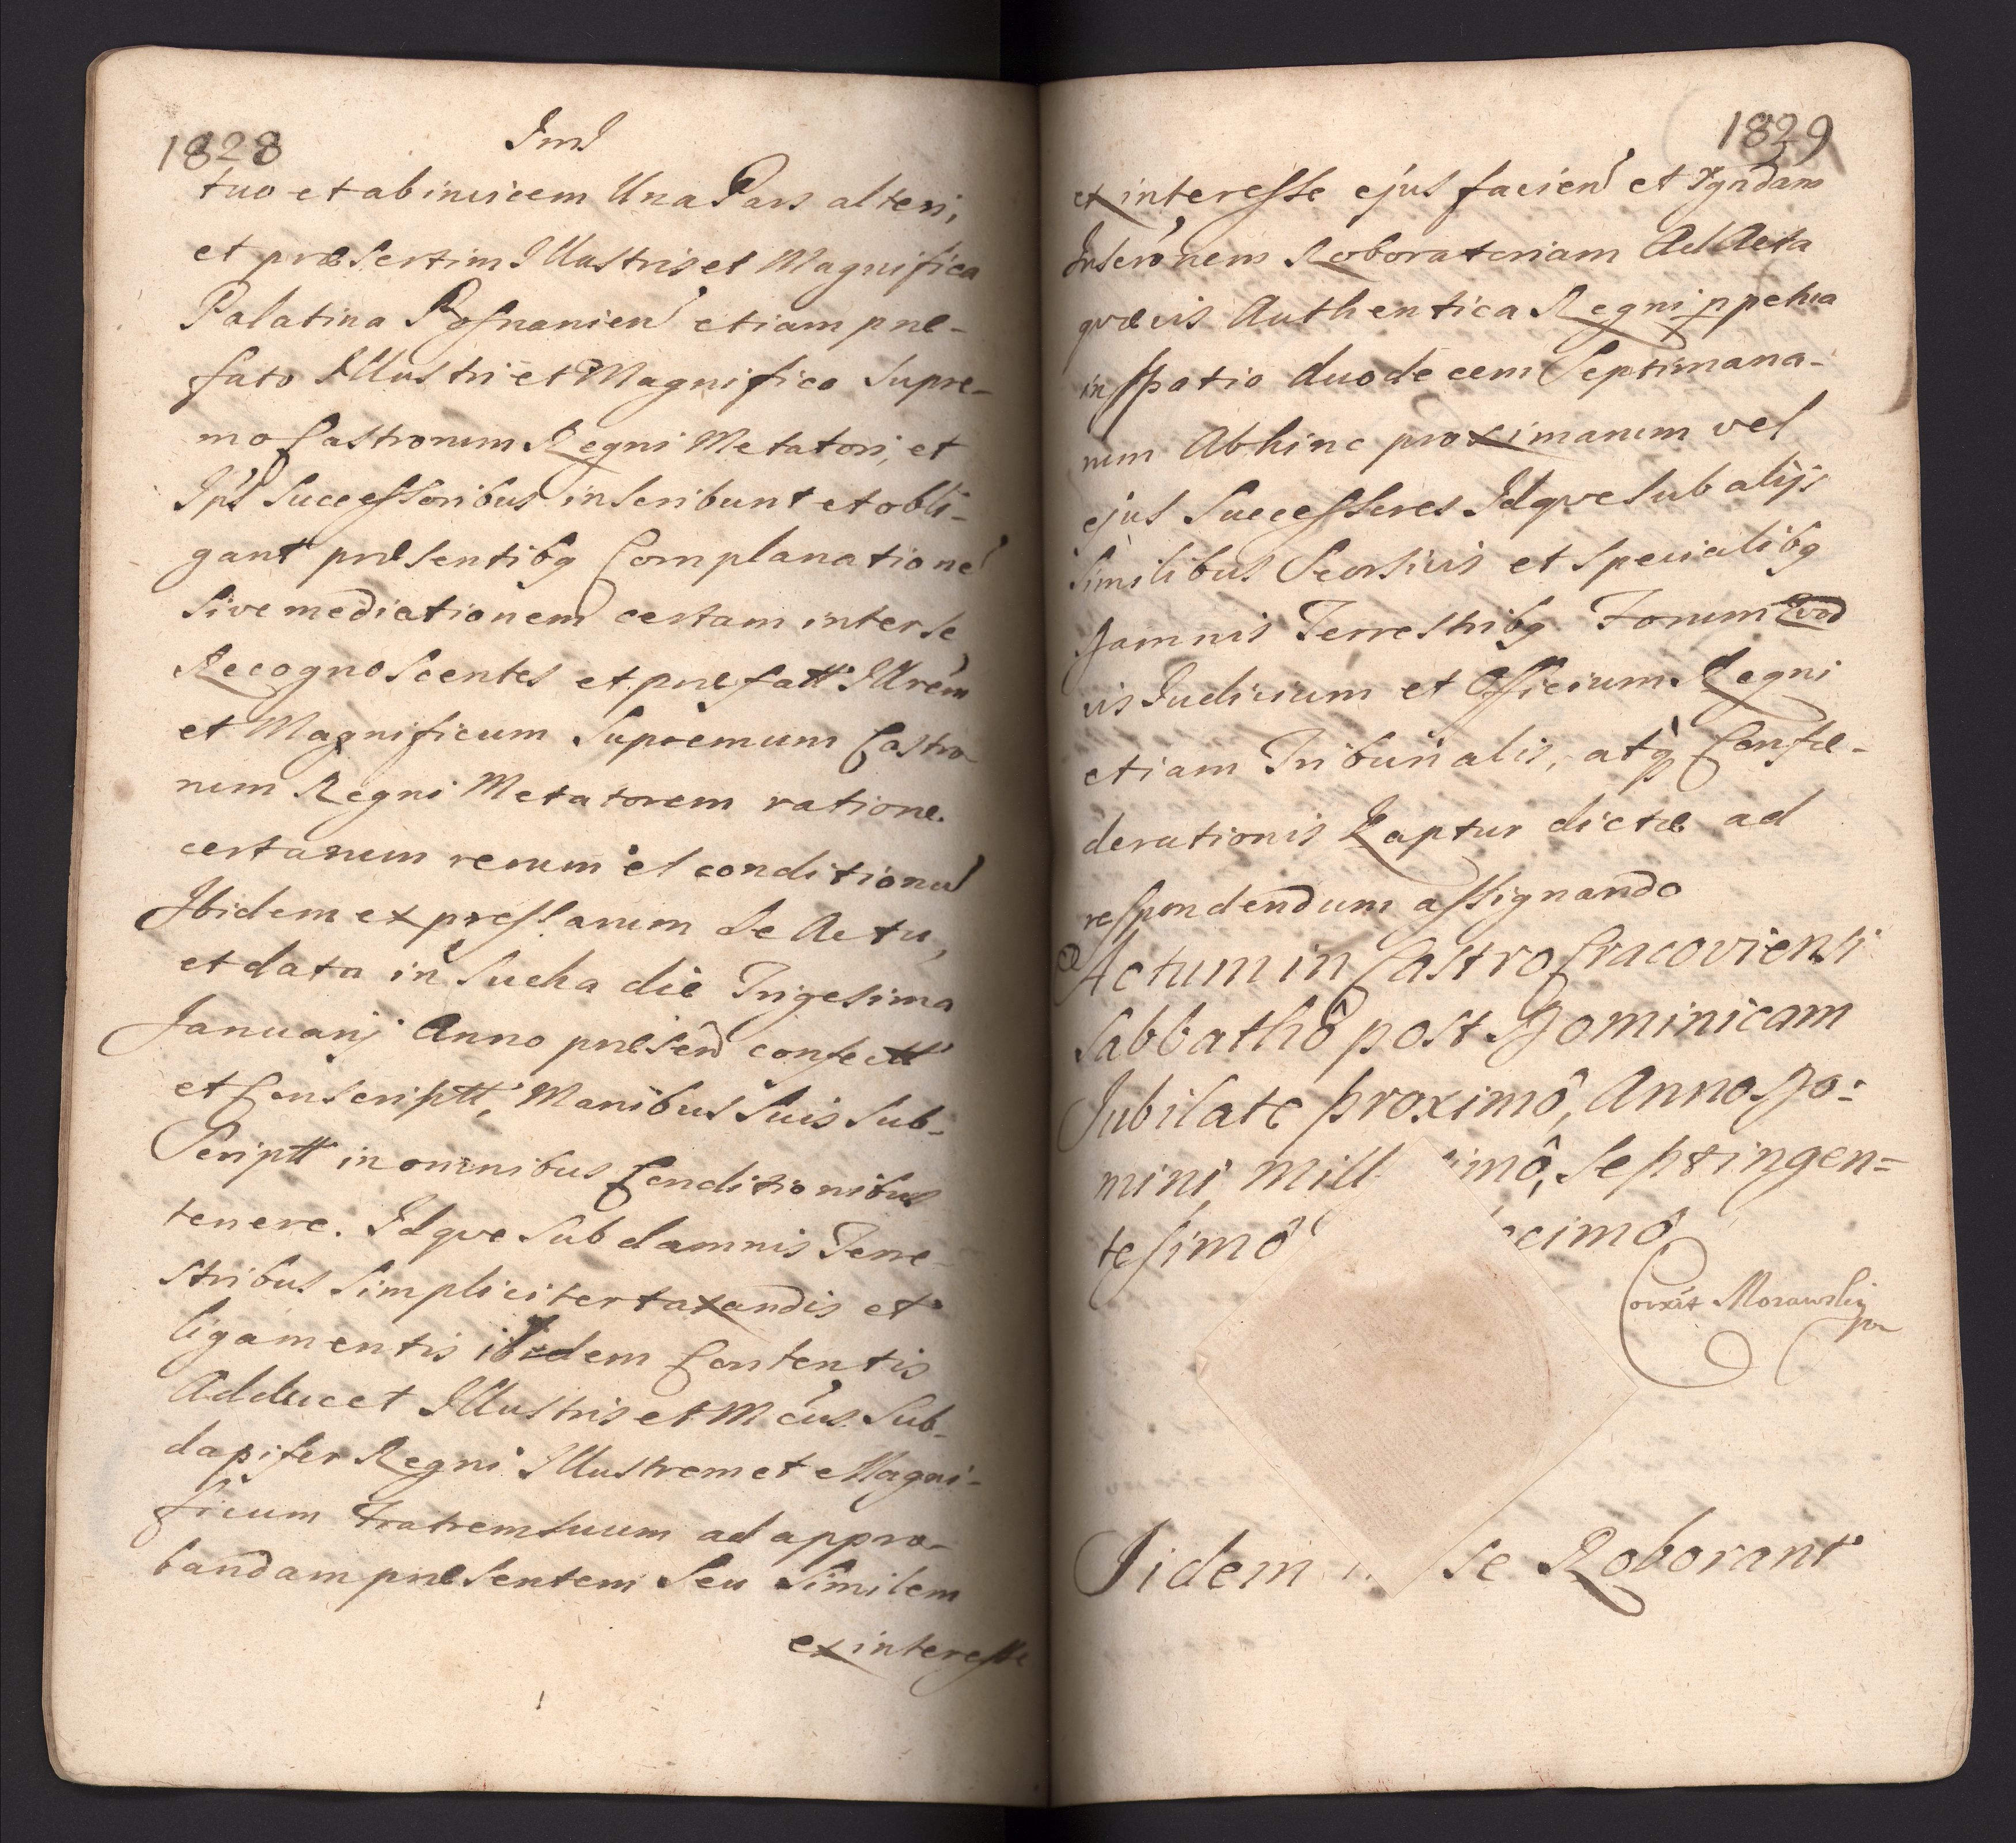 1828
Iml
tuo et ab invicem Una Pars alteri,
et præsertim Illustris et Magnifica
Palatina Posnanien etiam præ-
fato Illustri et Magnifico Supre-
mo Castrorum Regni Metatori, et
Ips Successoribus inscribunt et obli-
gant præsentibq Complanatione
sive mediationem certam inter se
Recognoscentes et præfatt Illrem
et Magnificum Supremum Castro
rum Regni Metatorem ratione
certarum rerum et conditionu
Ibidem expressarum de Actu,
et data in Sucha die Trigesima
Januarij Anno præsen confectt
et Conscriptt, Manibus Suis Sub-
Scriptt in omnibus Conditionibus
tenere. Idqve sub damnis Terre-
stribus simpliciter taxandis et
ligamentis ibidem Contentis
Adducet Illustris et Mcus Sub-
dapifer Regni Illustrem et Magni-
ficum Fratrem suum ad appro-
bandam præsentem seu Similem
ex interesse
1829
ex interesse ejus facien et
Inseronem Roboratoriam Ad Acta
qvævis Authentica Regni ppetua
in spatio duodecem Septimana-
rum Abhinc proximarum vel
ejus Successores Idqve sub alijs
similibus Seorsivis et specialibq
Damnis Terrestribq Forum Qvod
vis Iudicium et Officium Regni
etiam Tribunalis, atq Confæ-
derationis Kaptur dictæ ad
respondendum assignando
Actum in Castro Cracoviensi
Sabbathô post Dominicam
Jubilate proximô, Anno Do:
mini, Mill imô, Septingen=
tesimô ecimô
Corxit Morawsky
Iidem se Roborant